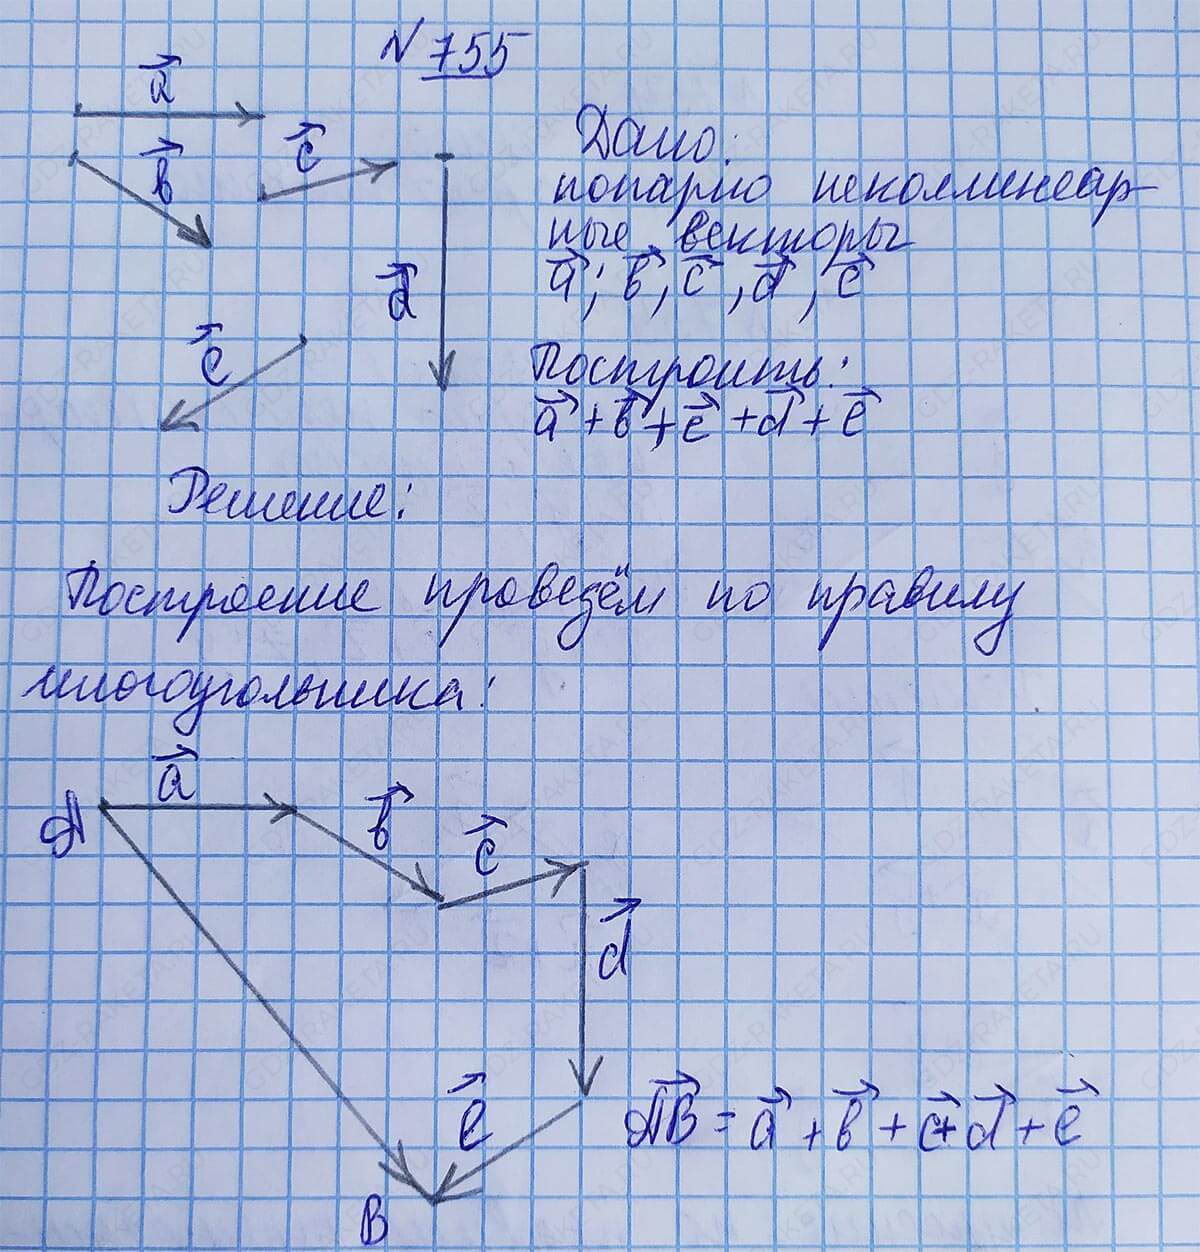 № 755
a⃗
b⃗
c⃗
d⃗
e⃗
Дано:
попарно неколлинеар-
ные векторы
a⃗; b⃗, c⃗, d⃗, e⃗
Построить:
a⃗ + b⃗ + c⃗ + d⃗ + e⃗
Решение:
Построение проведём по правилу
многоугольника:
a⃗
A
b⃗
c⃗
d⃗
e⃗
AB⃗ = a⃗ + b⃗ + c⃗ + d⃗ + e⃗
B
GDZ-RAKETA.RU